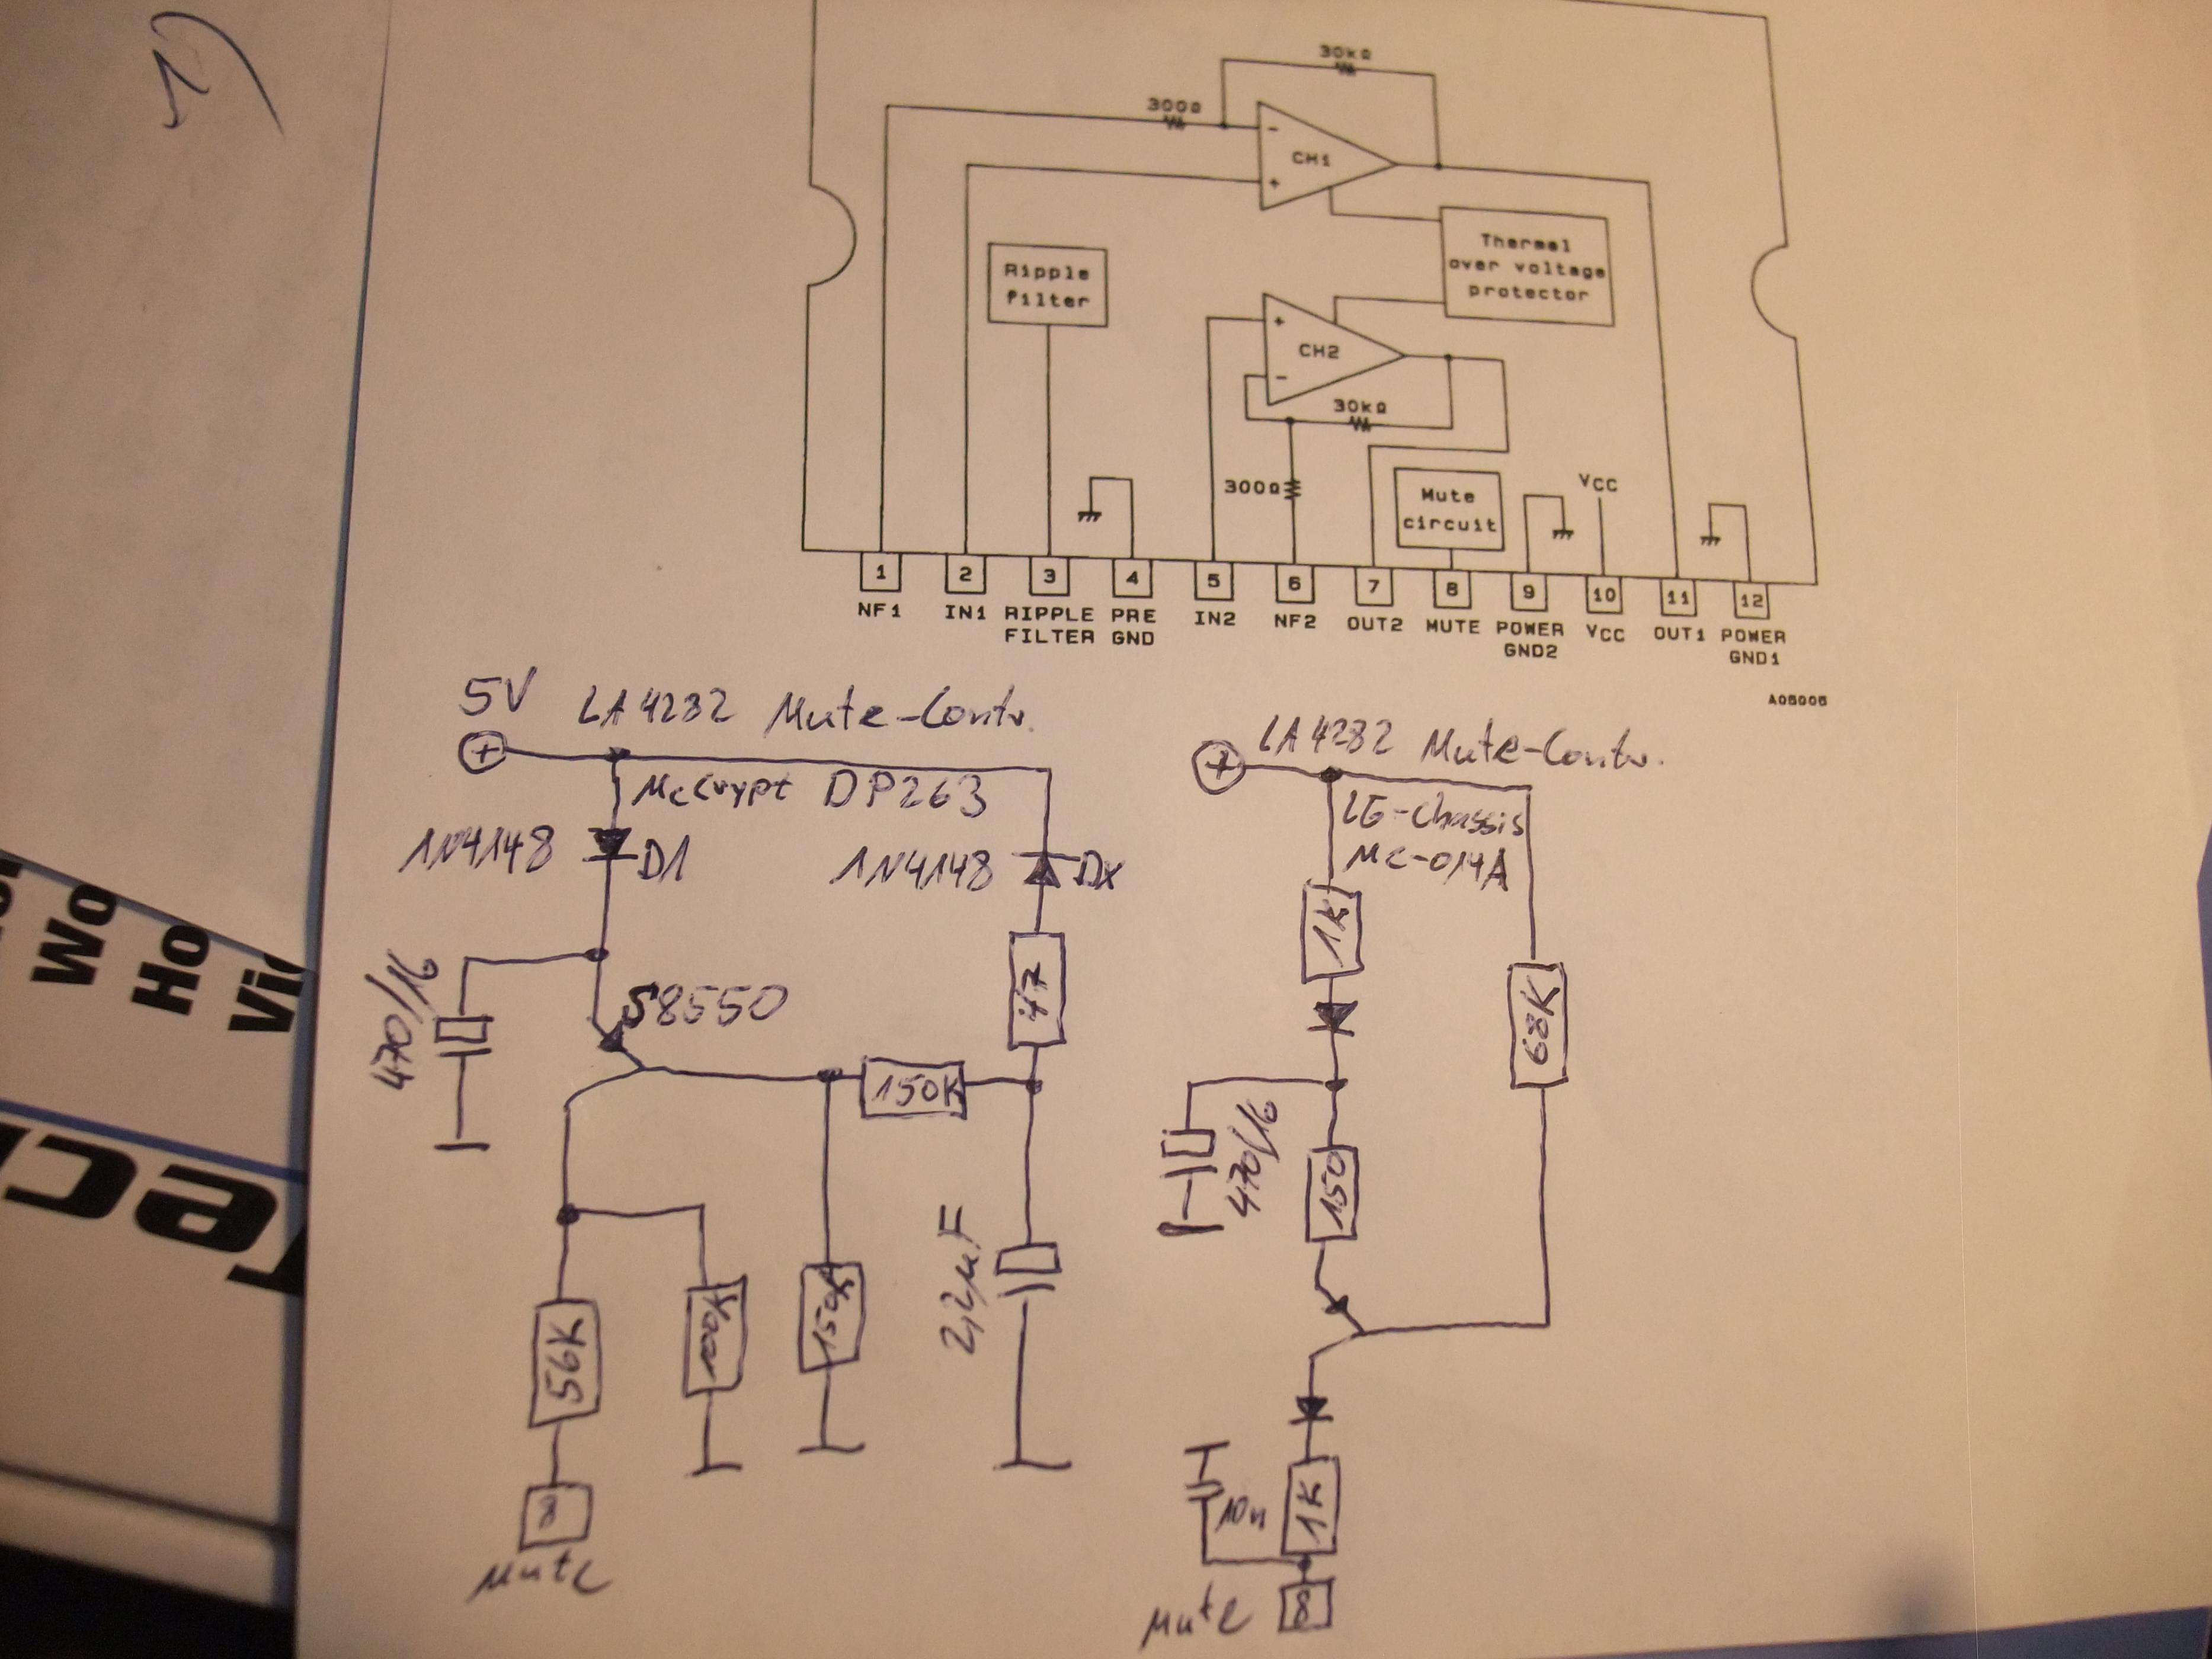 30kΩ
300Ω
CH1
Thermal
over voltage
protector
Ripple
filter
CH2
30kΩ
300Ω
Mute
circuit
VCC
1
2
3
4
5
6
7
8
9
10
11
12
NF1
IN1
RIPPLE
FILTER
PRE
GND
IN2
NF2
OUT2
MUTE
POWER
GND2
VCC
OUT1
POWER
GND1
A05005
5V
LA4282 Mute-Contr.
+
McCrypt DP263
1N4148
D1
1N4148
Dx
470/16
S8550
47
150K
56K
100K
150K
2,2µF
8
Mute
LA4282 Mute-Contr.
+
LG-Chassis
MC-014A
1K
68K
470/16
150
10n
1K
Mute
8
Wo
Ho